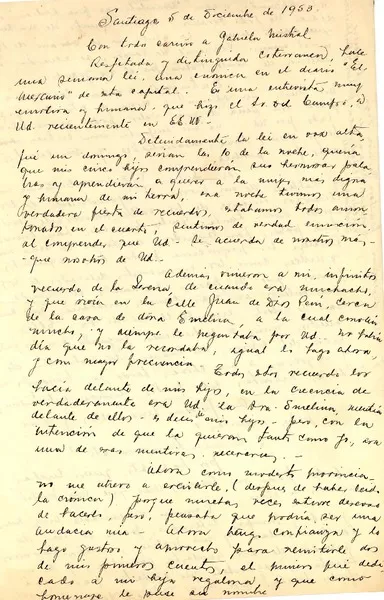 Santiago 5 de Diciembre de 1953
Con todo cariño a Gabriela Mistral
Respetada y distinguida coterránea, hace
una semana leí una crónica en el diario "El
Mercurio" de esta capital. Es una entrevista muy
emotiva y humana que hizo el Sr. Del Campo, a
Ud. recientemente en EE.UU.-
Detenidamente la leí en voz alta
fué un domingo, serían las 10 de la noche, quería
que mis cinco hijos comprendieran sus hermosas pala
bras y aprendieran a querer a la mujer mas digna
y humana de mi tierra, esa noche tuvimos una
verdadera fiesta de recuerdos, estabamos todos amon
tonados en el cuarto, sentimos de verdad emoción
al comprender que Ud. se acuerda de nosotros mas,
- que nosotros de Ud.-
Además vinieron a mi, infinitos
recuerdo de la Serena, de cuando era muchacho,
y que vivía en la Calle Juan de Dios Peni, cerca
de la casa de doña Emelina, a la cual conocía
mucho, y siempre le preguntaba por Ud. no había
día que no la recordaba, igual lo hago ahora,
y con mayor frecuencia.
Todos estos recuerdo los
hacía delante de mis hijos, en la creencia de
verdaderamente era Ud. la Sra. Emelina, mentía
delante de ellos - es decir mis hijos - pero, con la
intención de que la quieran tanto como yo, era
una de esas mentiras necesarias. -
Ahora como modesto provincia-
no me atrevo a escribirle, (después de haber leído
la crónica) porque muchas veces estuve deseoso
de hacerlo, pero, pensaba que podría ser una
audacia mía - Ahora tengo confianza y lo
hago gustoso, y aprovecho para remitirle dos
de mis primeros cuentos, el primero fué dedi
cado a mi hija regalona y que como
homenaje le puse su nombre